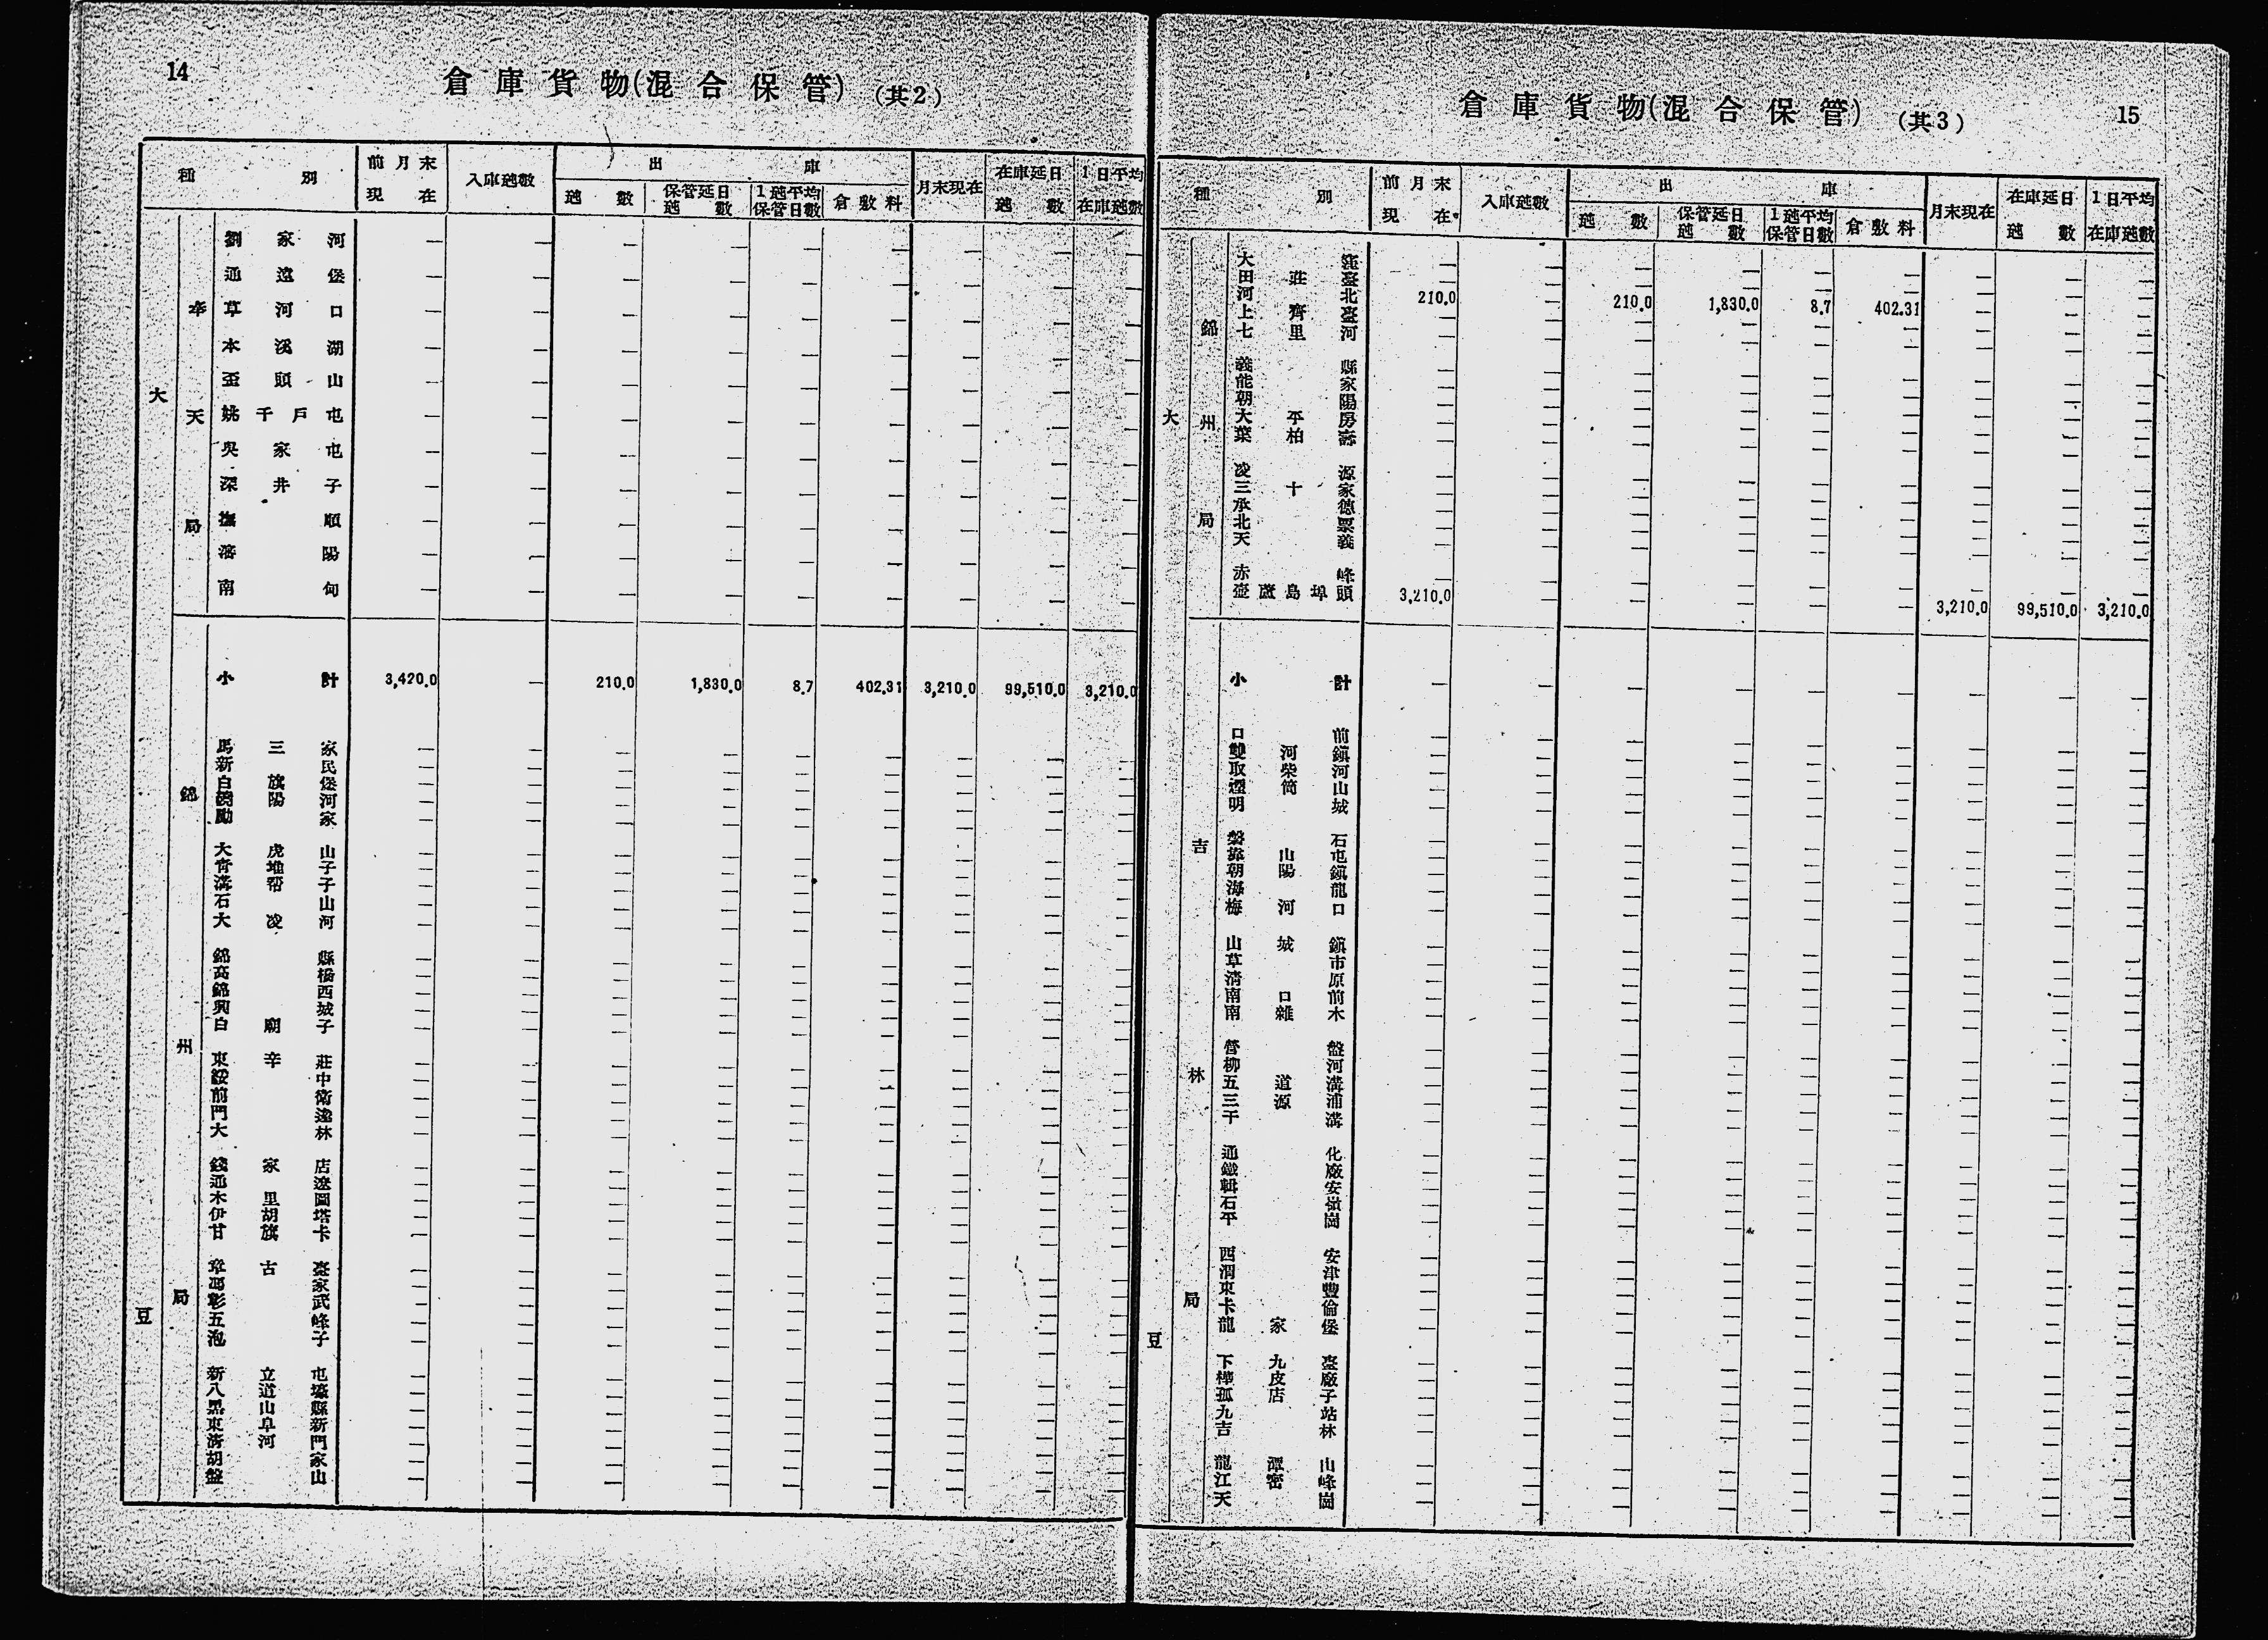 14
倉庫貨物(混合保管) (其2)
種別 前月末現在 入庫瓲數 出庫 月末現在 在庫延日瓲數 1日平均在庫瓲數
瓲數 保管延日瓲數 1瓲平均保管日數 倉敷料
大豆
奉天局
劉家河 — — — — — — — — —
通遠堡 — — — — — — — — —
草河口 — — — — — — — — —
本溪湖 — — — — — — — — —
歪頭山 — — — — — — — — —
姚千戶屯 — — — — — — — — —
吳家屯 — — — — — — — — —
深井子 — — — — — — — — —
撫順 — — — — — — — — —
瀋陽 — — — — — — — — —
南甸 — — — — — — — — —
錦州局
小計 3,420.0 — 210.0 1,830.0 8.7 402.31 3,210.0 99,510.0 3,210.0
馬三家 — — — — — — — — —
新民 — — — — — — — — —
白旗堡 — — — — — — — — —
繞陽河 — — — — — — — — —
勵家 — — — — — — — — —
大虎山 — — — — — — — — —
青堆子 — — — — — — — — —
溝幫子 — — — — — — — — —
石山 — — — — — — — — —
大凌河 — — — — — — — — —
錦縣 — — — — — — — — —
高橋 — — — — — — — — —
錦西 — — — — — — — — —
興城 — — — — — — — — —
白廟子 — — — — — — — — —
東辛莊 — — — — — — — — —
綏中 — — — — — — — — —
前衛 — — — — — — — — —
門達 — — — — — — — — —
大林 — — — — — — — — —
錢家店 — — — — — — — — —
通遼 — — — — — — — — —
木里圖 — — — — — — — — —
伊胡塔 — — — — — — — — —
甘旗卡 — — — — — — — — —
章古臺 — — — — — — — — —
馮家 — — — — — — — — —
彰武 — — — — — — — — —
五峰 — — — — — — — — —
泡子 — — — — — — — — —
新立屯 — — — — — — — — —
八道壕 — — — — — — — — —
黑山縣 — — — — — — — — —
東阜新 — — — — — — — — —
清河門 — — — — — — — — —
胡家 — — — — — — — — —
盤山 — — — — — — — — —
倉庫貨物(混合保管) (其3)
15
種別 前月末現在 入庫瓲數 出庫 月末現在 在庫延日瓲數 1日平均在庫瓲數
瓲數 保管延日瓲數 1瓲平均保管日數 倉敷料
大豆
錦州局
大窪 — — — — — — — — —
田莊臺 — — — — — — — — —
河北 210.0 — 210.0 1,830.0 8.7 402.31 — — —
上齊臺 — — — — — — — — —
七里河 — — — — — — — — —
義縣 — — — — — — — — —
能家 — — — — — — — — —
朝陽 — — — — — — — — —
大平房 — — — — — — — — —
葉柏壽 — — — — — — — — —
凌源 — — — — — — — — —
三十家 — — — — — — — — —
承德 — — — — — — — — —
北票 — — — — — — — — —
天義 — — — — — — — — —
赤峰 — — — — — — — — —
壺蘆島埠頭 3,210.0 — — — — — 3,210.0 99,510.0 3,210.0
吉林局
小計 — — — — — — — — —
口前 — — — — — — — — —
雙河鎭 — — — — — — — — —
取柴河 — — — — — — — — —
煙筒山 — — — — — — — — —
明城 — — — — — — — — —
磐石 — — — — — — — — —
靠山屯 — — — — — — — — —
朝陽鎭 — — — — — — — — —
海龍 — — — — — — — — —
梅河口 — — — — — — — — —
山城鎭 — — — — — — — — —
草市 — — — — — — — — —
淸原 — — — — — — — — —
南口前 — — — — — — — — —
南雜木 — — — — — — — — —
營盤 — — — — — — — — —
柳河 — — — — — — — — —
五道溝 — — — — — — — — —
三源浦 — — — — — — — — —
干溝 — — — — — — — — —
通化 — — — — — — — — —
鐵廠 — — — — — — — — —
輯安 — — — — — — — — —
石嶺 — — — — — — — — —
平崗 — — — — — — — — —
西安 — — — — — — — — —
渭津 — — — — — — — — —
東豐 — — — — — — — — —
卡倫 — — — — — — — — —
龍家堡 — — — — — — — — —
下九臺 — — — — — — — — —
樺皮廠 — — — — — — — — —
孤店子 — — — — — — — — —
九站 — — — — — — — — —
吉林 — — — — — — — — —
龍潭山 — — — — — — — — —
江密峰 — — — — — — — — —
天崗 — — — — — — — — —